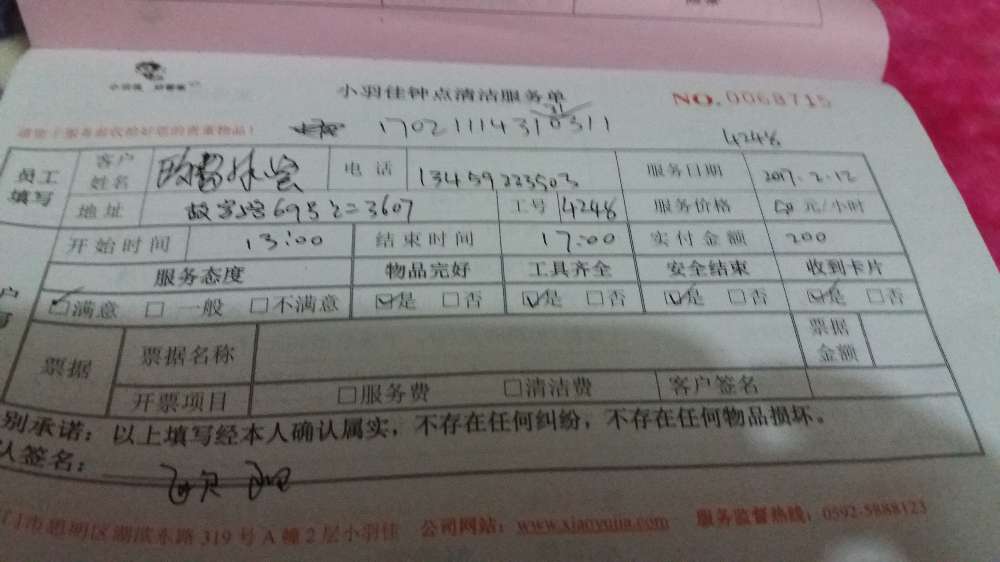 小羽佳钟点清洁服务单 NO.0068715
17021111431 0311 4248
员工填写 客户姓名 电话 13459223503 服务日期 2017.2.12
地址 69号 3607 工号 4248 服务价格 50 元/小时
开始时间 13:00 结束时间 17:00 实付金额 200
服务态度 物品完好 工具齐全 安全结束 收到卡片
☑满意 □一般 □不满意 ☑是 □否 ☑是 □否 ☑是 □否 ☑是 □否
票据 票据名称 票据金额
开票项目 □服务费 □清洁费 客户签名
别承诺：以上填写经本人确认属实，不存在任何纠纷，不存在任何物品损坏。
人签名：
门市思明区湖滨东路319号A幢2层小羽佳 公司网站：www.xiaoyujia.com 服务监督热线：0592-5888123